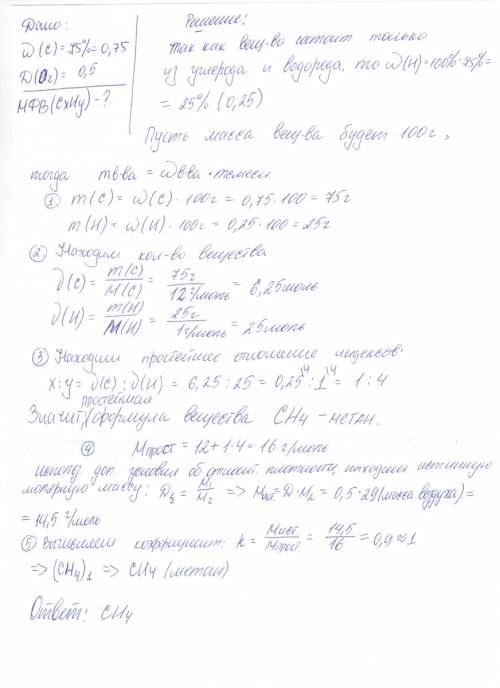 Дано:
ω(С)=75%=0,75
D(O₂)= 0,5
МФВ(CxHy)-?
Решение:
так как вещ-во состоит только
из углерода и водорода, то ω(H)=100%-75%=
= 25% (0,25)
Пусть масса вещ-ва будет 100г,
тогда mв-ва = ωв-ва · mсмеси
① m(C) = ω(C)·100г = 0,75·100 = 75г
m(H) = ω(H)·100г = 0,25·100 = 25г
② Находим кол-во вещества
ν(C) = m(C)/M(C) = 75г/12г/моль = 6,25моль
ν(H) = m(H)/M(H) = 25г/1г/моль = 25моль
③ Находим простейшее отношение индексов:
x:y = ν(C):ν(H) = 6,25:25 = 0,25\4 : 1\4 = 1:4
простейшая
Значит, формула вещества CH₄ - метан.
④ Mпрост = 12+1·4 = 16 г/моль
использ. доп. условия об относит. плотности, находим истинную
молярную массу: D₂ = M₁/M₂ => Mист = D·M₂ = 0,5·29(масса воздуха) =
= 14,5 г/моль
⑤ Вычисляем коэффициент: k = Mист./Mпрост. = 14,5/16 = 0,9≈1
=> (CH₄)₁ => CH₄ (метан)
Ответ: CH₄